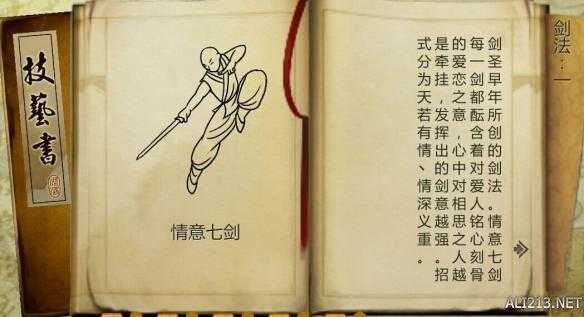 剑法：一
剑圣早年所创的剑法。情意七剑
每一剑都酝含着对爱人铭心刻骨
的爱恋之意，心中对相思之人越
是牵挂，发挥出的剑意越强。招
式分为天若有情、情深义重。
情意七剑
技藝書
ALI213.NET